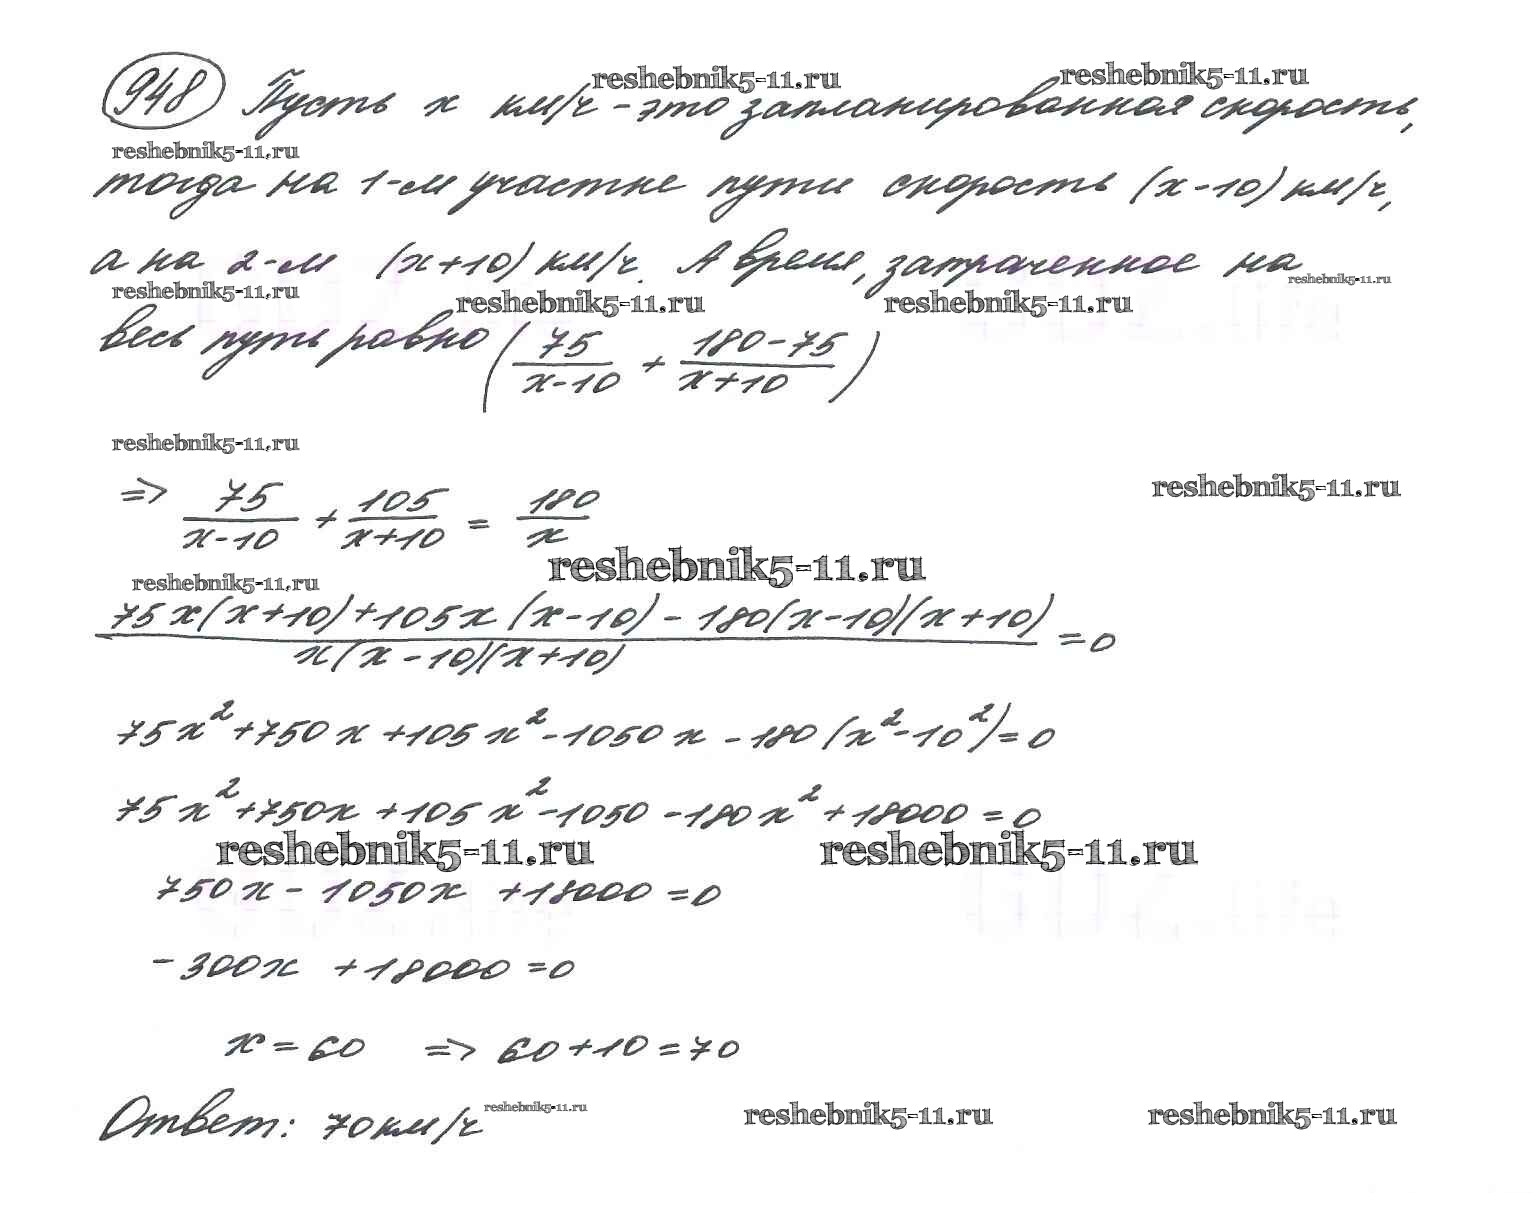 reshebnik5-11.ru reshebnik5-11.ru
948 Пусть x км/ч - это запланированная скорость,
reshebnik5-11.ru
тогда на 1-м участке пути скорость (x-10) км/ч,
а на 2-м (x+10) км/ч. А время, затраченное на
reshebnik5-11.ru
reshebnik5-11.ru reshebnik5-11.ru reshebnik5-11.ru
весь путь равно (75/(x-10) + (180-75)/(x+10))
reshebnik5-11.ru
reshebnik5-11.ru
=> 75/(x-10) + 105/(x+10) = 180/x
reshebnik5-11.ru
reshebnik5-11.ru
(75x(x+10)+105x(x-10)-180(x-10)(x+10))/(x(x-10)(x+10)) = 0
75x²+750x+105x²-1050x-180(x²-10²)=0
75x²+750x+105x²-1050-180x²+18000=0
reshebnik5-11.ru reshebnik5-11.ru
750x-1050x+18000=0
-300x+18000=0
x=60 => 60+10=70
Ответ: 70км/ч
reshebnik5-11.ru reshebnik5-11.ru reshebnik5-11.ru